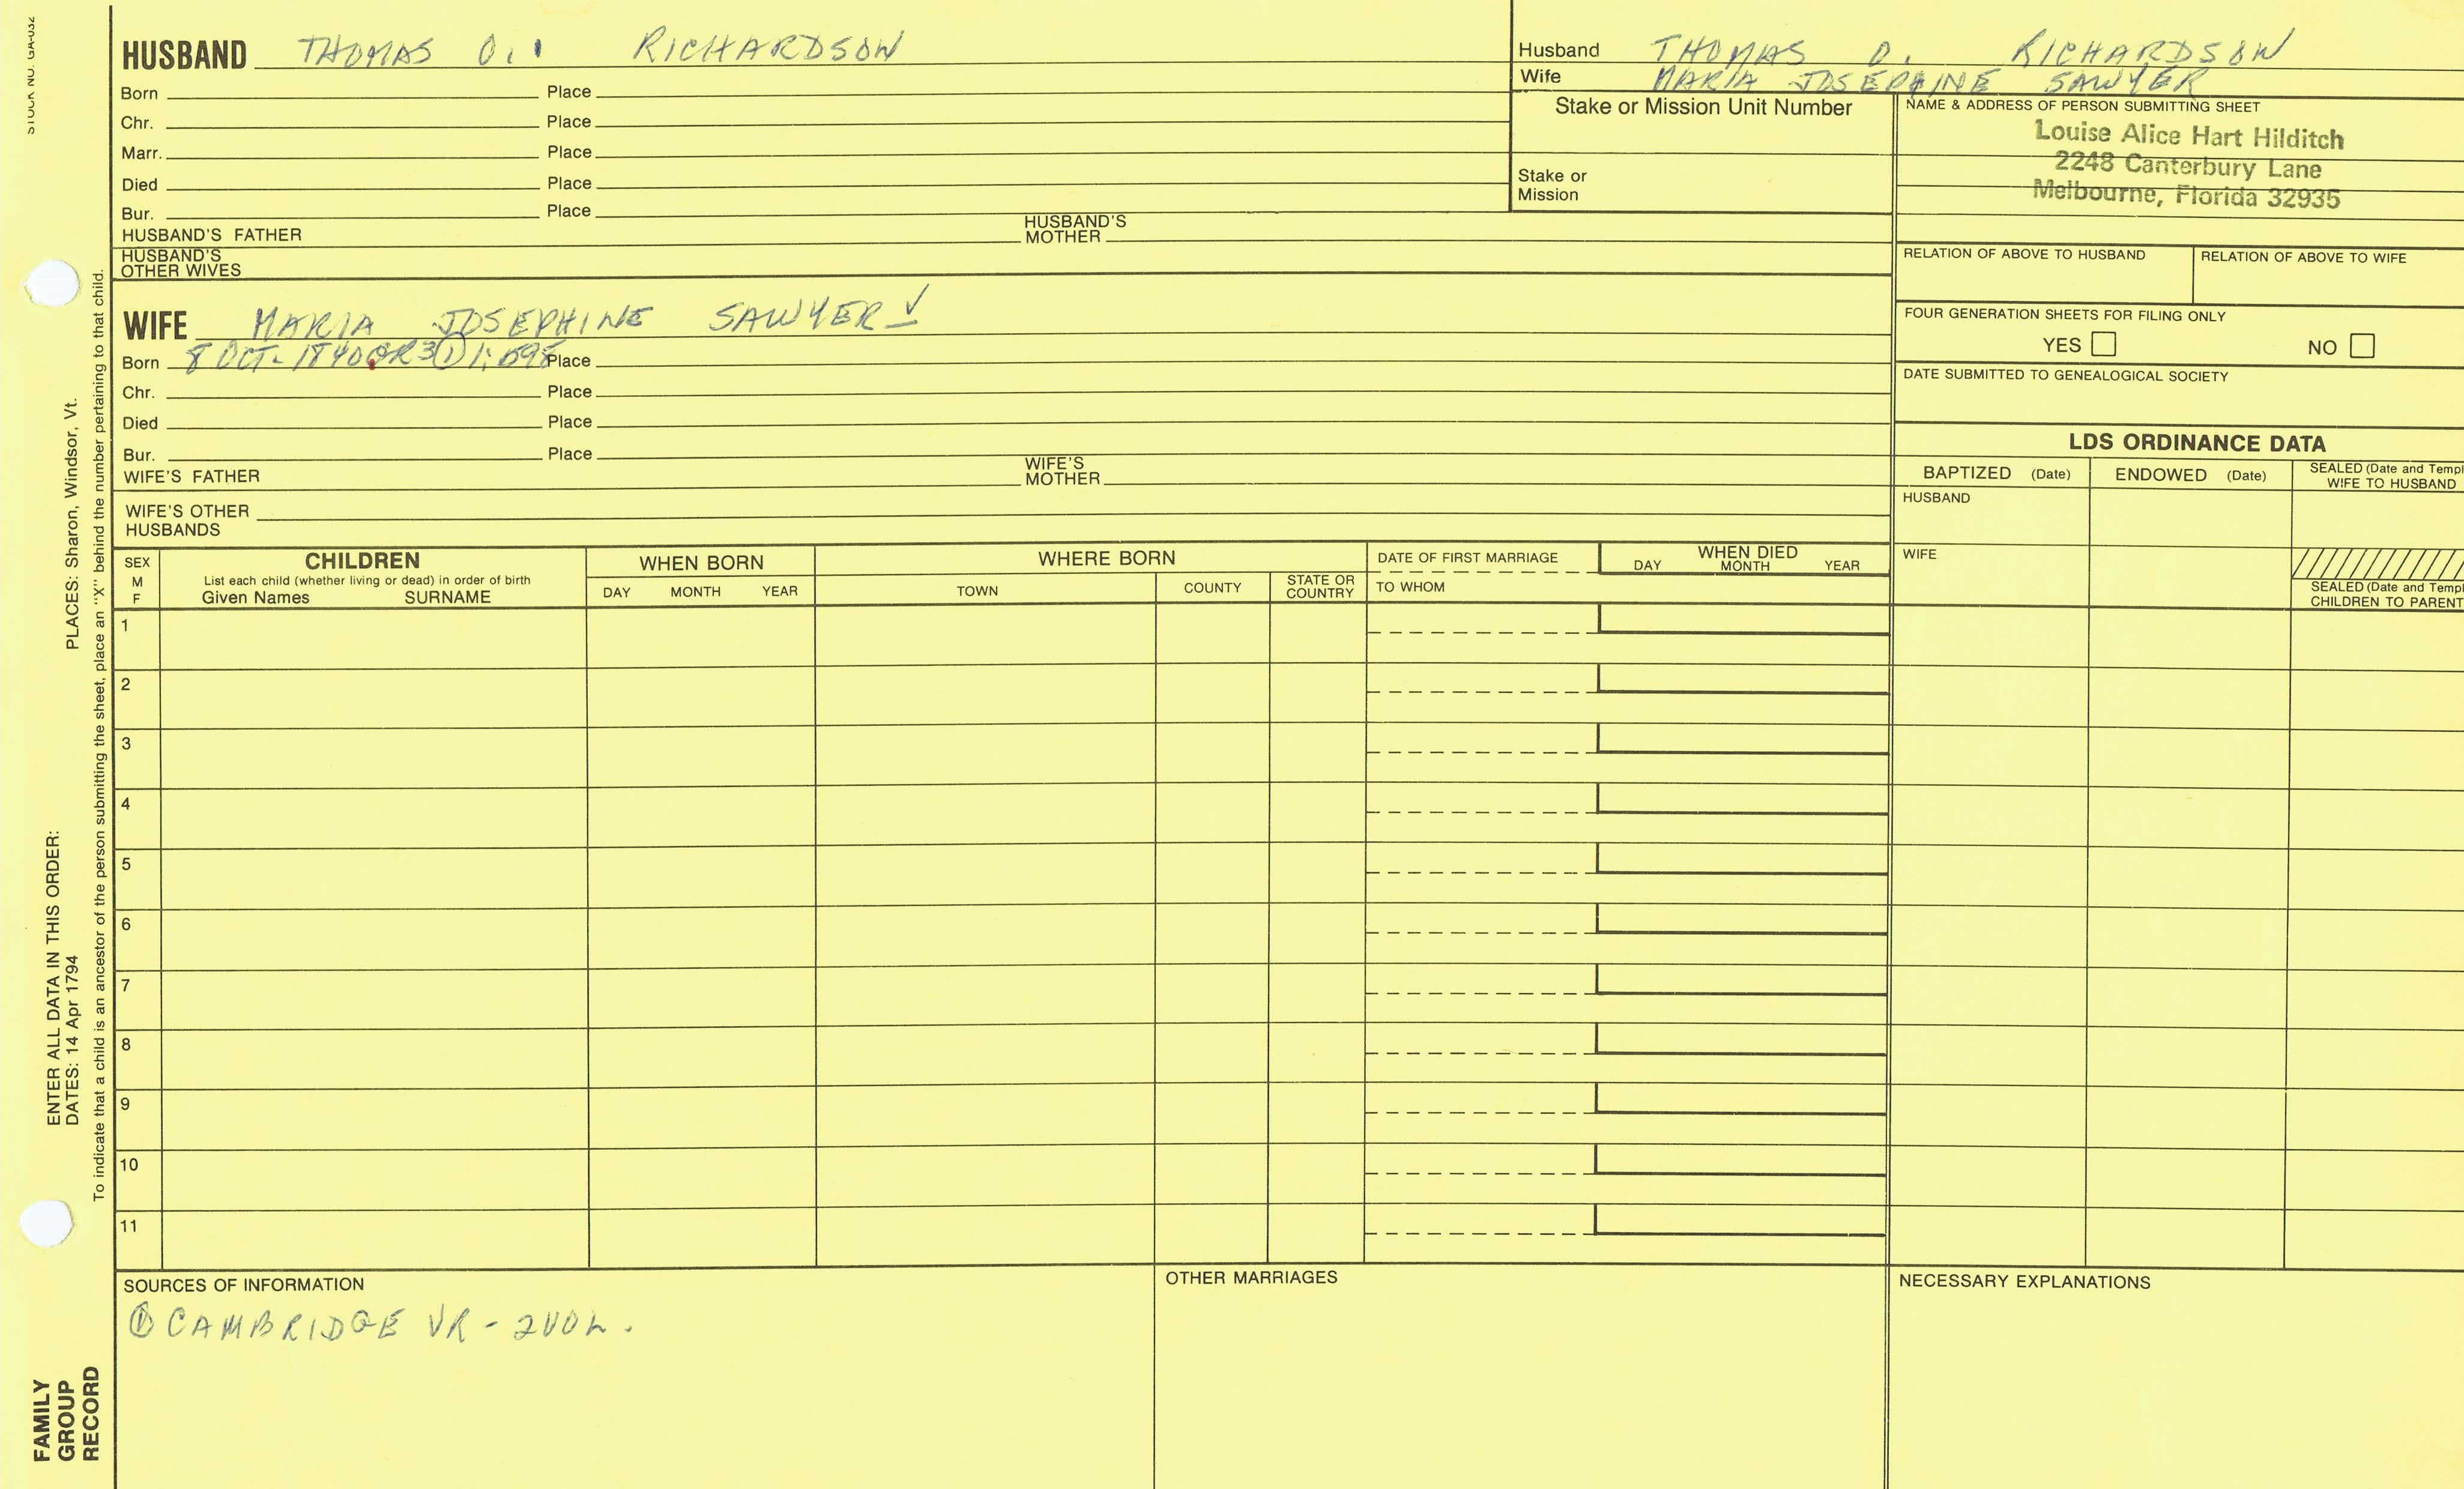 STOCK NO. GA-032
HUSBAND THOMAS O. RICHARDSON
Born Place
Chr. Place
Marr. Place
Died Place
Bur. Place
HUSBAND'S FATHER HUSBAND'S MOTHER
HUSBAND'S OTHER WIVES
WIFE MARIA JOSEPHINE SAWYER √
Born 8 OCT- 1840 OR 3 ① 1: Place
Chr. Place
Died Place
Bur. Place
WIFE'S FATHER WIFE'S MOTHER
WIFE'S OTHER HUSBANDS
Husband THOMAS O. RICHARDSON
Wife MARIA JOSEPHINE SAWYER
Stake or Mission Unit Number
Stake or
Mission
NAME & ADDRESS OF PERSON SUBMITTING SHEET
Louise Alice Hart Hilditch
2248 Canterbury Lane
Melbourne, Florida 32935
RELATION OF ABOVE TO HUSBAND RELATION OF ABOVE TO WIFE
FOUR GENERATION SHEETS FOR FILING ONLY
YES NO
DATE SUBMITTED TO GENEALOGICAL SOCIETY
LDS ORDINANCE DATA
BAPTIZED (Date) ENDOWED (Date) SEALED (Date and Templ
WIFE TO HUSBAND
HUSBAND
WIFE
SEALED (Date and Templ
CHILDREN TO PARENT
SEX
M
F
CHILDREN
List each child (whether living or dead) in order of birth
Given Names SURNAME
WHEN BORN
DAY MONTH YEAR
WHERE BORN
TOWN COUNTY STATE OR COUNTRY
DATE OF FIRST MARRIAGE
TO WHOM
WHEN DIED
DAY MONTH YEAR
1
2
3
4
5
6
7
8
9
10
11
SOURCES OF INFORMATION
① CAMBRIDGE VR - 2VOL.
OTHER MARRIAGES
NECESSARY EXPLANATIONS
PLACES: Sharon, Windsor, Vt.
ENTER ALL DATA IN THIS ORDER:
DATES: 14 Apr 1794
To indicate that a child is an ancestor of the person submitting the sheet, place an "X" behind the number pertaining to that child.
FAMILY
GROUP
RECORD